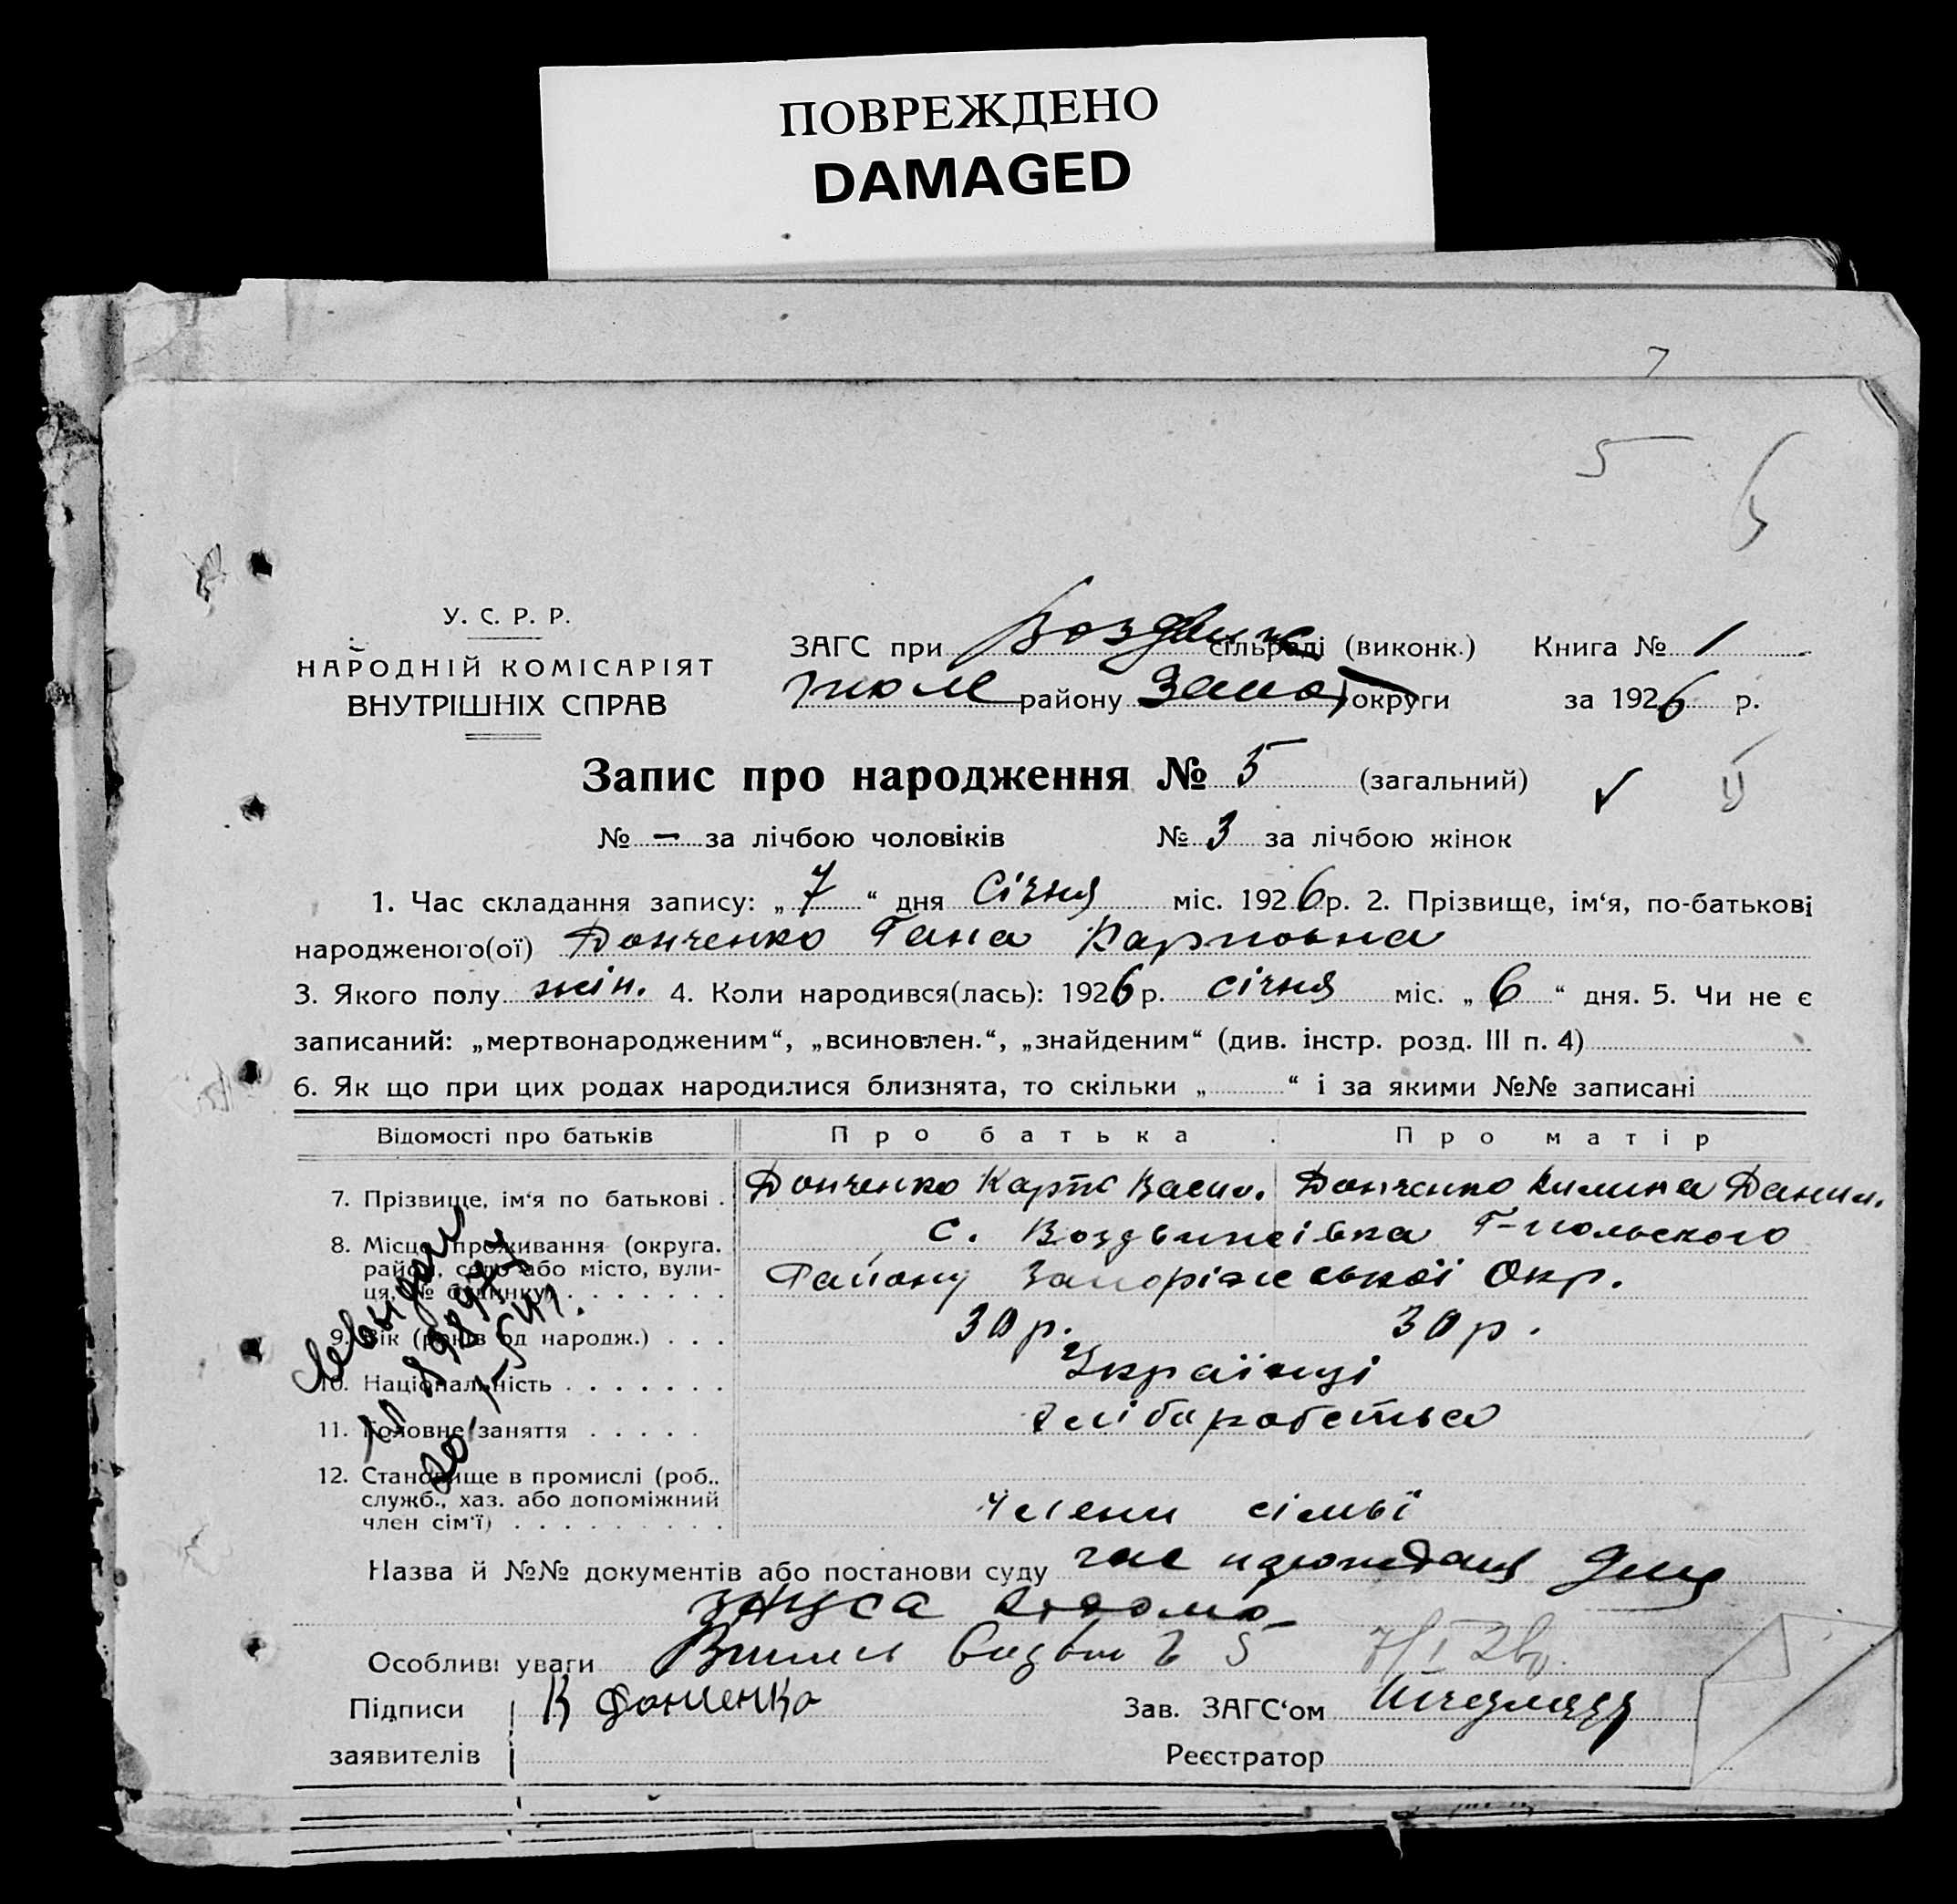 ПОВРЕЖДЕНО
DAMAGED
7
5
У. С. Р. Р.
НАРОДНІЙ КОМІСАРІЯТ
ВНУТРІШНІХ СПРАВ
ЗАГС при Воздвиж сільраді (виконк.) Книга № 1
району Запор округи за 1926 р.
Запис про народження № 5 (загальний)
№ – за лічбою чоловіків № 3 за лічбою жінок
1. Час складання запису: „7“ дня Січня міс. 1926 р. 2. Прізвище, ім‘я, по-батькові
народженого(ої) Донченко Гана Карповна
3. Якого полу жін. 4. Коли народився(лась): 1926 р. січня міс. „6“ дня. 5. Чи не є
записаний: „мертвонародженим“, „всиновлен.“, „знайденим“ (див. інстр. розд. III п. 4)
6. Як що при цих родах народилися близнята, то скільки „ “ і за якими №№ записані
Відомості про батьків Про батька Про матір
7. Прізвище, ім‘я по батькові . Донченко Карпо Васил. Донченко Килина Данил.
8. Місце проживання (округа, с. Воздвижівка Г-польского
район, село або місто, вули- Району Запоріжської Окр.
ця, № будинку) . . . . . . .
9. Вік (років од народж.) . . . 30 р. 30 р.
10. Національність . . . . . . . Українці
11. Головне заняття . . . . . хліборобство
12. Становище в промислі (роб.,
служб., хаз. або допоміжний
член сім‘ї) . . . . . . . . . члени сімьї
Назва й №№ документів або постанови суду
Особливі уваги 5 7/I 26р.
Підписи К Донченко Зав. ЗАГС‘ом
заявителів Реєстратор